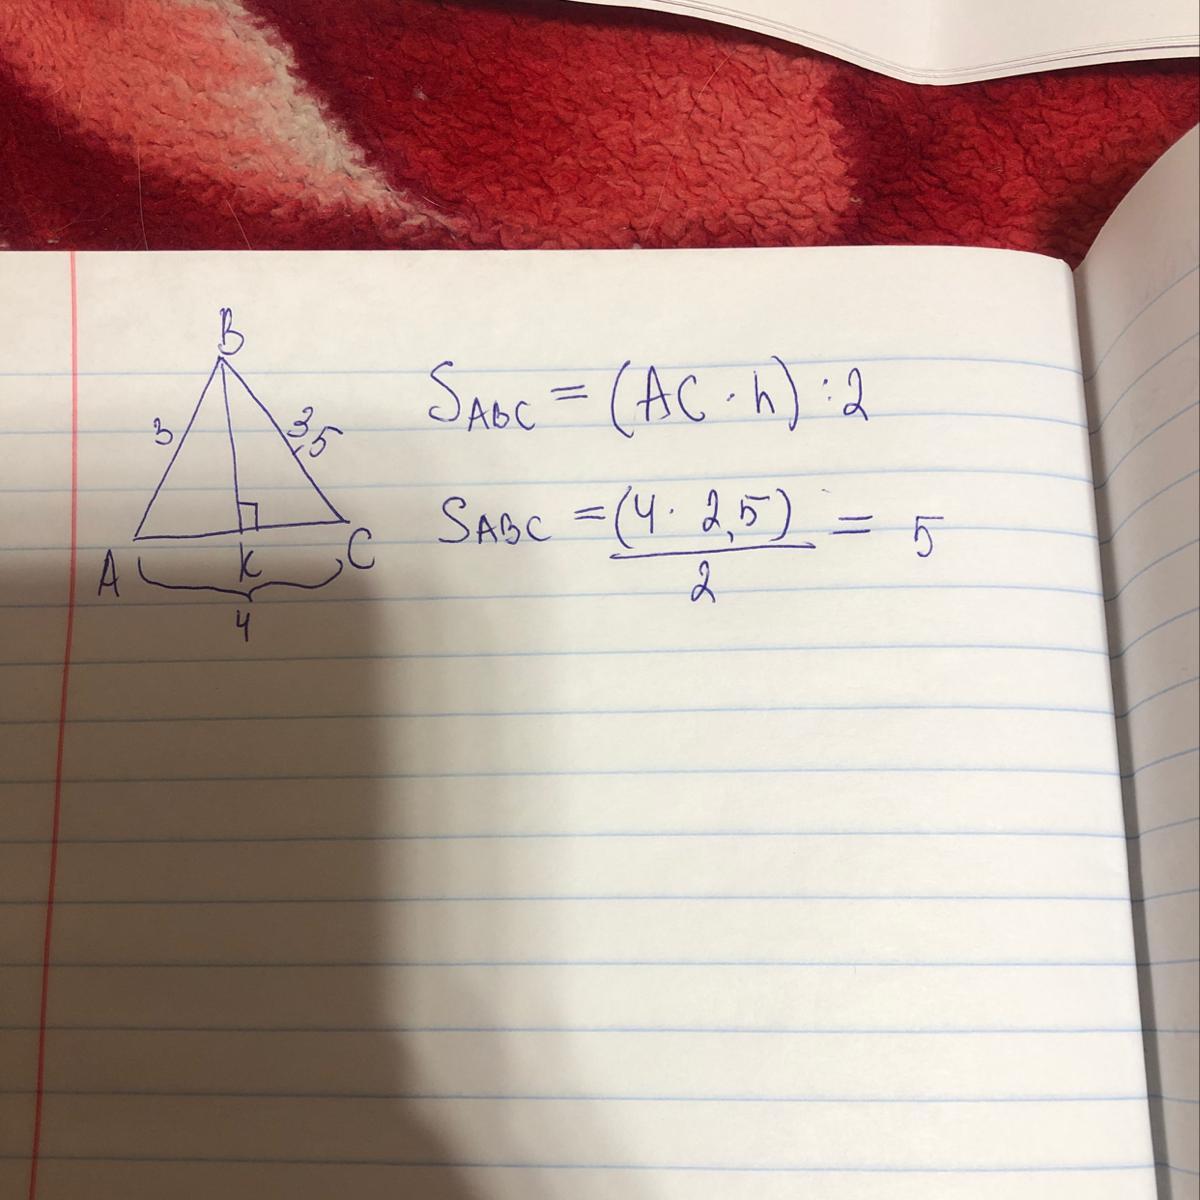 B
3
3,5
A
K
C
4
S_ABC = (AC · h) : 2
S_ABC = (4 · 2,5) / 2 = 5